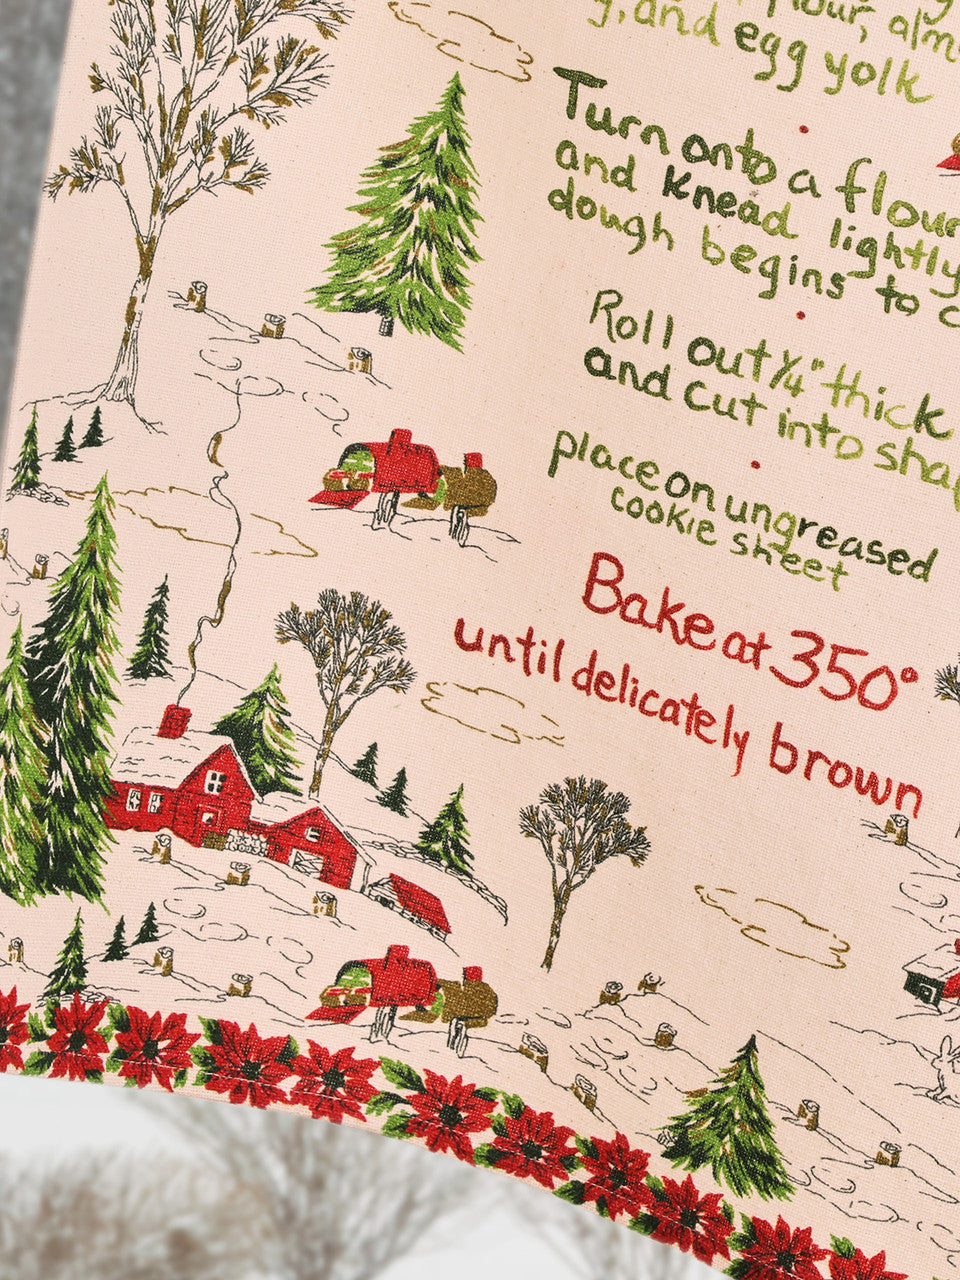 flour, alm
g, and egg yolk
Turn onto a flour
and knead lightly
dough begins to c
Roll out ¼" thick
and cut into sha
place on ungreased
cookie sheet
Bake at 350°
until delicately brown